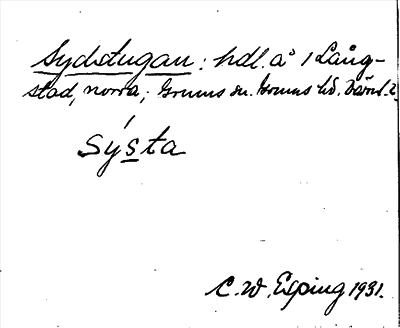 Sydstugan: hdl. å 1 Lång-
stad, norra; Grums sn. Grums hd. Värml. l.
Sýsta
C. W. Esping 1931.